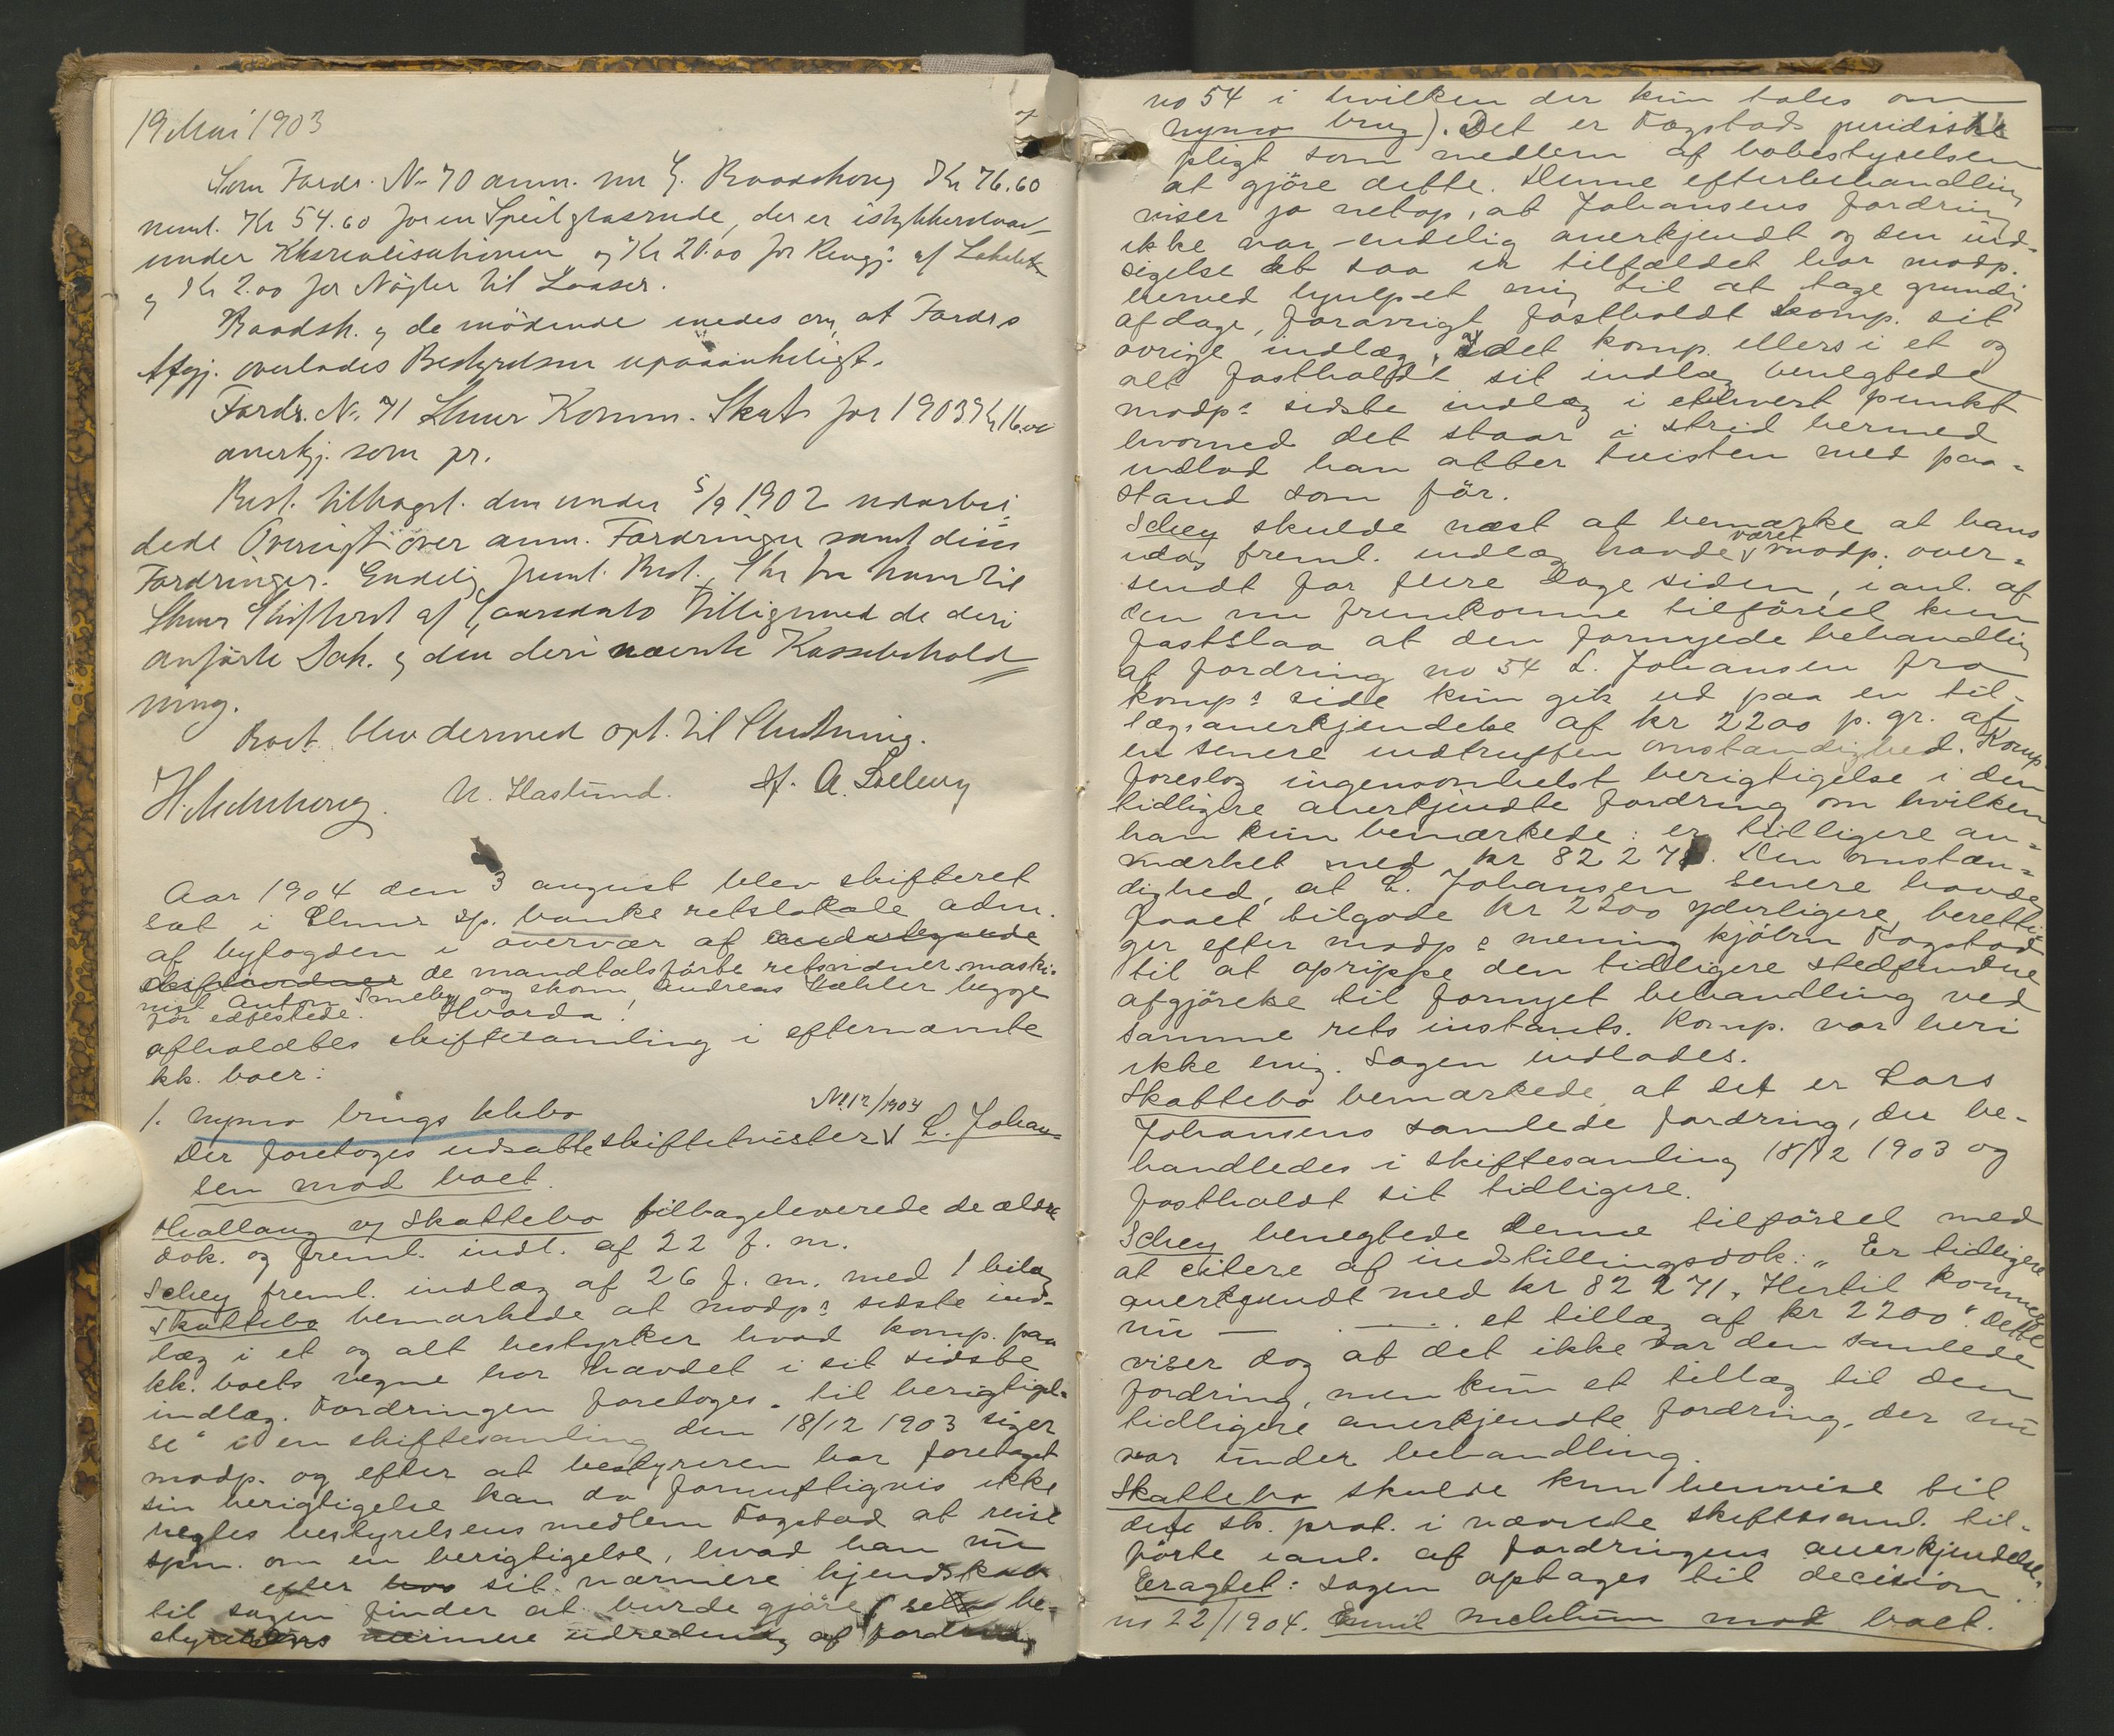 19 Mai 1903
Som Fordr. No 70 anm. nu G. Raadshoug Kr 76.60
neml. Kr 54.60 for en Speilglasrude, der er istykkerslaaet
under Khsrealisationen og Kr 20.00 for Rengj: af Lokalet
og Kr 2.00 for Nøgler til Laaser.
Raadsh. og de mödende enedes om, at Fordrs
Afgj. overlades Bestyrelsen upaaankeligt.
Fordr. No. 71 Elverum Komm. Skat for 1903 Kr 16.00
anerkj. som pr.
Best. tilbagel. den under 5/9 1902 udarbei
dede Oversigt över anm. Fordringer samt disse
Fordringer. Endelig freml. Best. Skr fra ham til
Skifteret af Gaarsdato tilligemed de deri
anförte Dok. og den deri nævnte Kassebehold
ning.
Boet blev dermed opt. til Slutning.
H. Mehrhoug. N. Haslund. A. Sæleby
Aar 1904 den 3 august blev skifteret
sat i sp. banks retslokale adm.
af byfogden i overvær af undertegnede
skiftevidner de mandtalsförte retsvidner maski-
nist Anton Smeby og skom. Andreas Kæhler begge
för edfestede. Hvorda!
afholdtes skiftesamling i efternævnte
kk. boer:
1. Nymo brugs kkbo No 12/1904
Der foretoges udsatte skiftetvister V L. Johan-
sen mod boet.
Hallang v/ Skattebo tilbageleverede de ældre
dok. og freml. indl. af 22 f. m.
Schey freml. indlæg af 26 f. m. med 1 bilag
Skattebo bemærkede at modp: sidste ind-
læg i et og alt bestyrker hvad komp. paa
kk. boets vegne har hævdet i sit sidste
indlæg. Fordringen foretoges „til berigtigel-
se“ i en skiftesamling den 18/12 1903 siger
modp. og efter at bestyreren har foretaget
sin berigtigelse kan da fornuftigvis ikke
negtes bestyrelsens medlem Fagstad at reise
spm. om en berigtigelse, hvad han nu
efter hvo sit nærmere kjendskab
til sagen finder at burde gjöre (se be-
styrelsens nærmere udredning af fordring
no 54 i hvilken der kun tales om
nymo brug). Det er Fagstads juridiske
pligt som medlem af bobestyrelsen
at gjöre dette. Denne efterbehandling
viser jo netop, at Johansens fordring
ikke var endelig anerkjendt og den ind-
sigelse at saa er tilfældet har modp.
herved hjulpet mig til at tage grundig
afdage, foravrigt fastholdt komp. sit
övrige indlæg. Idet komp. ellers i et og
alt fastholdt sit indlæg benegtede
modp: sidste indlæg i ethvert punkt
hvormed det staar i strid hermed
indlod han atter tvisten med paa-
stand som för.
Schey skulde næst at bemærke at hans
idag freml. indlæg havde været modp. over-
sendt for flere dage siden, i anl. af
den nu fremkomne tilförsel kun
fastslaa at den fornyede behandling
af fordring no 54 L. Johansen fra
komp: side kun gik ud paa en til-
lægsanerkjendelse af kr 2200 p. gr. af
en senere indtruffen omstændighed. Komp.
foreslog ingensomhelst berigtigelse i den
tidligere anerkjendte fordring om hvilken
han kun bemærkede: er tidligere an-
mærket med kr 82 271. Den omstæn-
dighed, at L. Johansen senere havde
faaet tilgode kr 2200 yderligere, beretti-
ger efter modp: mening kjöbm Fagstad
til at oprippe den tidligere stedfundne
afgjörelse til fornyet behandling ved
samme rets instants. Komp. var heri
ikke enig. Sagen indlodes.
Skattebo bemærkede at det er Lars
Johansens samlede fordring, der be-
handledes i skiftesamling 18/12 1903 og
fastholdt sit tidligere.
Schey benegtede denne tilförsel med
at citere af indstillingsdok: „Er tidligere
anerkjendt med kr 82 271, Hertil kommer
nu — . —. et tillæg af kr 2200“. Dette
viser dog at det ikke var den samlede
fordring, men kun et tillæg til den
tidligere anerkjendte fordring, der nu
var under behandling.
Skattebo skulde kun henvise til
det sk. prot. i nævnte skiftesaml. til-
förte i anl. af fordringens anerkjendelse.
Eragtet: Sagen optages til decision.
no 22/1904. Emil Mehlum mod boet.